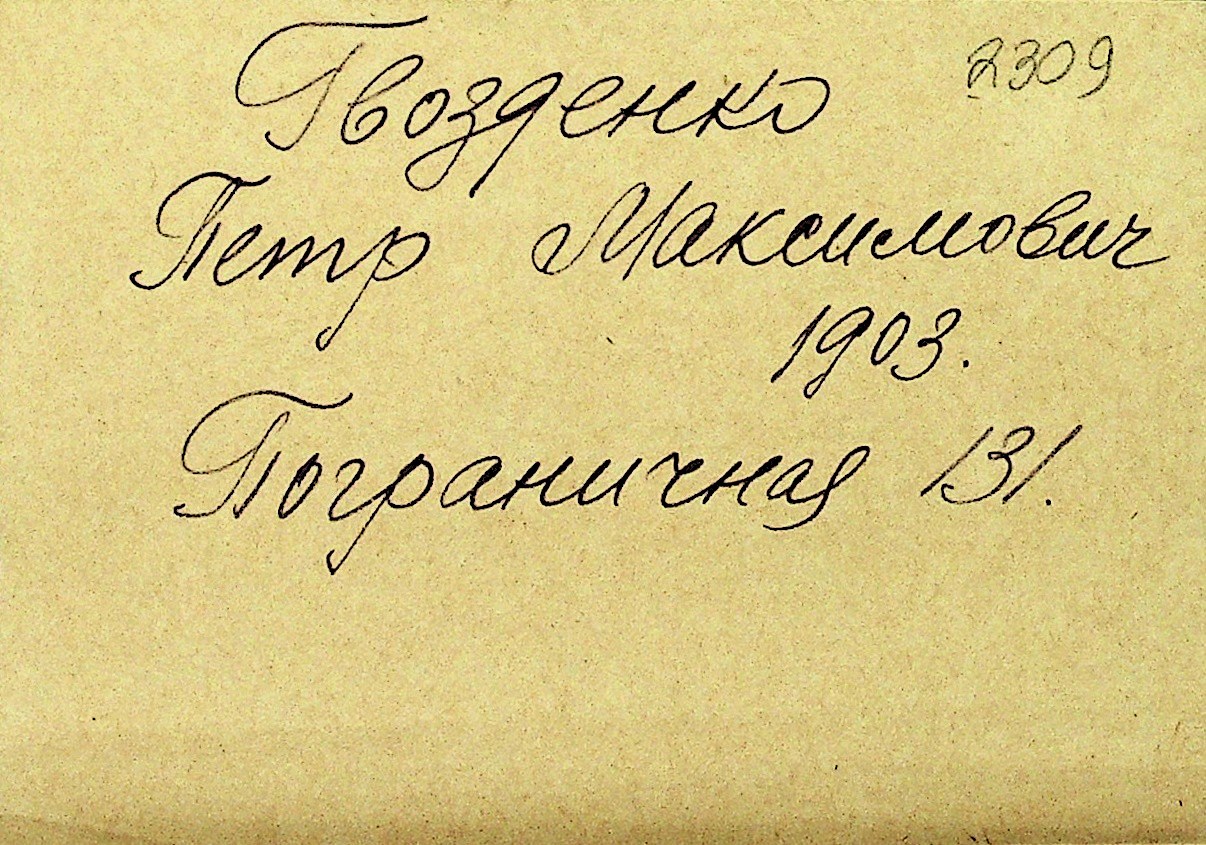 Гвозденко 2309
Петр Максимович
1903.
Пограничная 131.